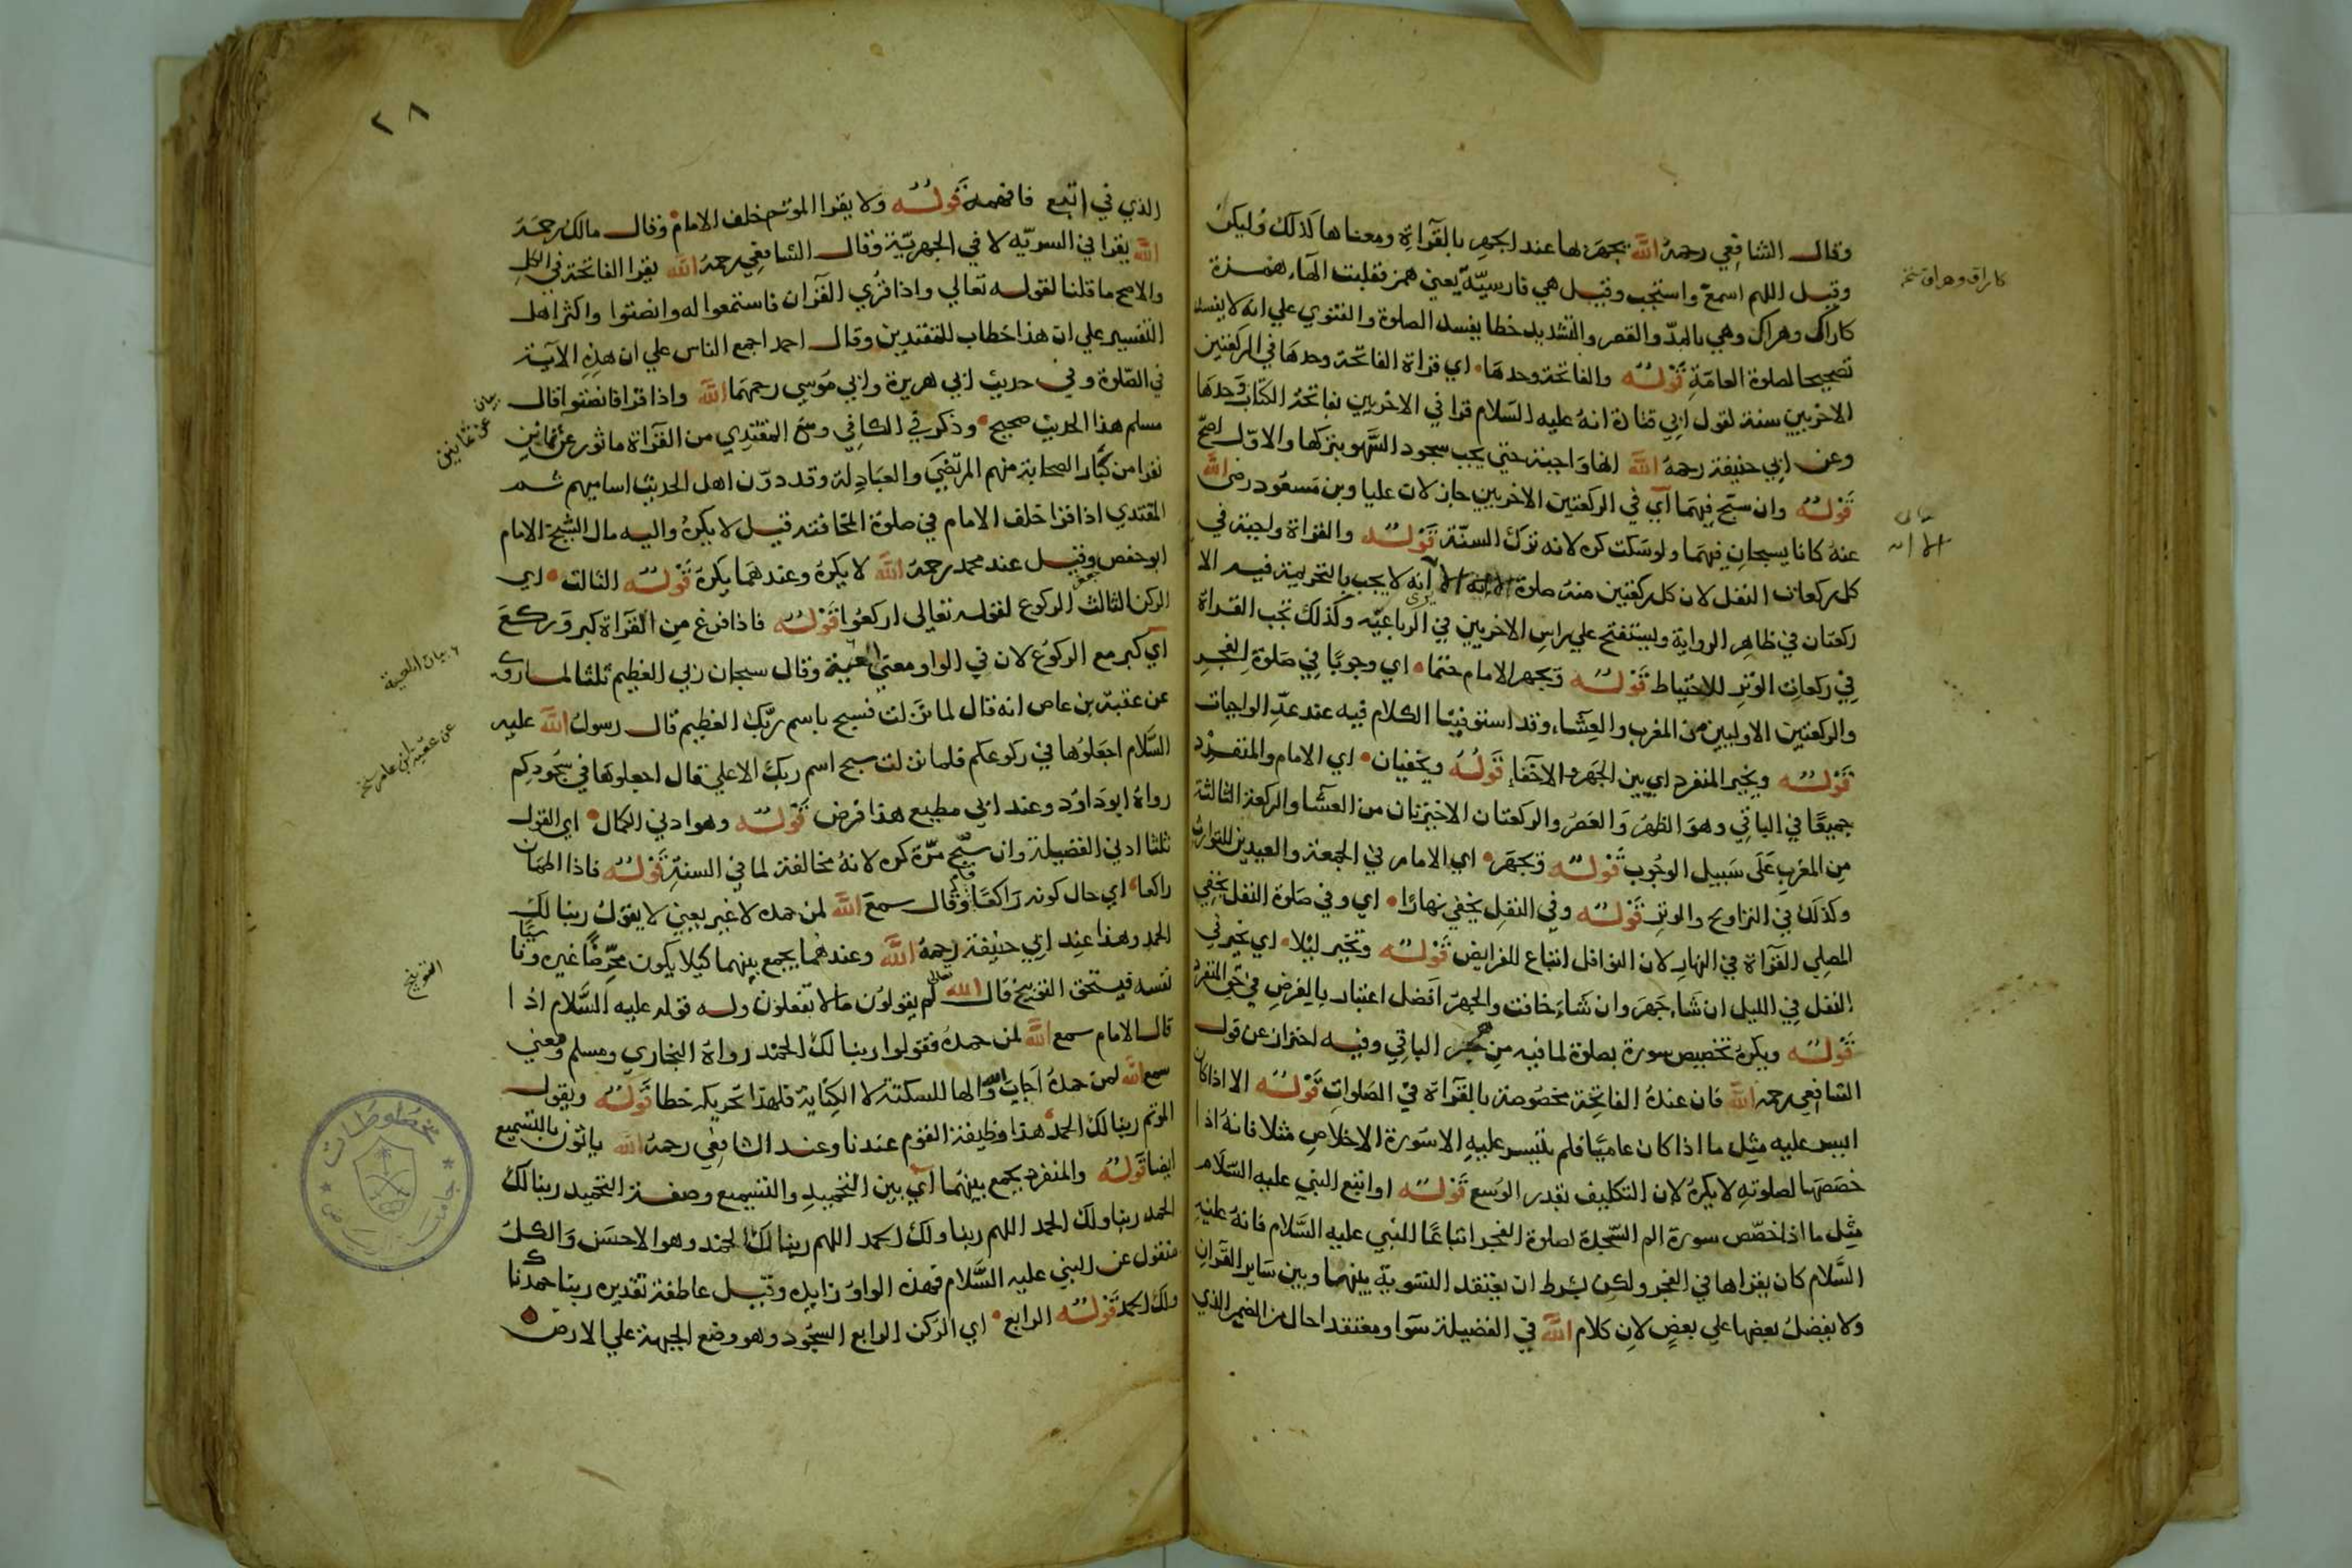 وقال الشافعي رحمه الله يجهر بها عند الجهر بالقرآة ومعناها كذلك وليكن
وقيل اللهم اسمع واستجب وقيل هي فارسية يعني همز فقلبت الهاء همزة
كاراك وهراك وهي بالمد والقصر والتشديد خطا يفسد الصلوة والفتوي علي انه لا يفسد
تصحيحا لصلوة العامة قوله والفاتحة وحدها اي قراة الفاتحة وحدها في الركعتين
الاخريين سنة لقول ابي قتادة انه عليه السلام قرا في الاخريين بفاتحة الكتاب وحدها
وعن ابي حنيفة رحمه الله انها واجبة حتي يجب سجود السهو بتركها والاول اصح
قوله وان سبح فيهما اي في الركعتين الاخريين جاز لان عليا وبن مسعود رضي الله
عنه كانا يسبحان فيهما ولو سكت كره لانه ترك السنة قوله والقراة واجبة في
كل ركعات النفل لان كل ركعتين منه صلوة الا انه لا يجب بالتحريمة فيه الا
ركعتان في ظاهر الرواية ويستفتح علي راس الاخريين في الرباعيه وكذلك تجب القراة
في ركعات الوتر للاحتياط قوله وجهر الامام حتما اي وجوبا في صلوة الفجر
والركعتين الاوليين من المغرب والعشاء وقد استوفينا الكلام فيه عند عد الواجبات
قوله ويخير المنفرد اي بين الجهر والاخفا قوله ويخفيان اي الامام والمنفرد
جميعا في الباقي وهو الظهر والعصر والركعتان الاخيرتان من العشا والركعة الثالثة
من المغرب على سبيل الوجوب قوله وجهر اي الامام في الجمعة والعيدين للتوارث
وكذلك في التراويح والوتر قوله وفي النفل يخفي نهارا اي وفي صلوة النفل يخفي
المصلي القرآة في النهار لان النوافل اتباع للفرايض قوله وتخير ليلا اي يخير في
النفل في الليل ان شاء جهر وان شاء خافت والجهر افضل اعتبار بالفرض في حق المنفرد
قوله ويكره تخصيص سورة بصلوة لما فيه من هجر الباقي وفيه احتراز عن قول
الشافعي رحمه الله فان عنده الفاتحة مخصوصة بالقرآة في الصلوات قوله الا اذا كان
ايسر عليه مثل ما اذا كان عاميا فلم يتيسر عليه الا سورة الاخلاص مثلا فانه اذا
خصصها لصلوته لا يكره لان التكليف بقدر الوسع قوله او اتبع النبي عليه السلام
مثل ما اذا خصص سورة الم السجدة لصلوة الفجر اتباعا للنبي عليه السلام فانه عليه
السلام كان يقراها في الفجر ولكن بشرط ان يعتقد التسوية بينهما وبين ساير القرآن
ولا يفضل بعضها علي بعض لان كلام الله في الفضيلة سوا ومعتقدا حال من الضمير الذي
كاراق وهراق نخ
الا انه
٢٨
الذي في اتبع فافهمه قوله ولا يقرا الموتم خلف الامام وقال مالك رحمه
الله يقرا في السريه لا في الجهرية وقال الشافعي رحمه الله يقرا الفاتحة في الكل
والاصح ما قلنا لقوله تعالي واذا قري القرآن فاستمعوا له وانصتوا واكثر اهل
التفسير علي ان هذا خطاب للمقتدين وقال احمد اجمع الناس علي ان هذه الآية
في الصلوة وفي حديث ابي هريرة وابي موسي رحمهما الله واذا قرا فانصتوا قال
مسلم هذا الحديث صحيح وذكر في الكافي ومنع المقتدي من القرآة ماثور عن ثمانين
نفرا من كبار الصحابة منهم المرتضي والعبادلة وقد دون اهل الحديث اساميهم ثم
المقتدي اذا قرا خلف الامام في صلوة المخافتة قيل لا يكره واليه مال الشيخ الامام
ابو حفص وقيل عند محمد رحمه الله لا يكره وعندهما يكره قوله الثالث اي
الركن الثالث الركوع لقوله تعالي اركعوا قوله فاذا فرغ من القراة كبر وركع
اي كبر مع الركوع لان في الواو معني المعية وقال سبحان ربي العظيم ثلثا لما روي
عن عقبة بن عاص انه قال لما نزلت فسبح باسم ربك العظيم قال رسول الله عليه
السلام اجعلوها في ركوعكم فلما نزلت سبح اسم ربك الاعلي قال اجعلوها في سجودكم
رواه ابو داود وعند ابي مطيع هذا فرض قوله وهو ادني الكمال اي القول
ثلثا ادني الفضيلة وان سبح مرة كره لانه مخالفة لما في السنة قوله فاذا اطمان
راكعا اي حال كونه راكعا قام وقال سمع الله لمن حمده لا غير يعني لا يقول ربنا لك
الحمد وهذا عند ابي حنيفة رحمه الله وعندهما يجمع بينهما كيلا يكون محرضا غيره وناسيا
نفسه فيستحق التوبيخ قال الله تعالي لم يقولون ما لا تفعلون وله قوله عليه السلام اذا
قال الامام سمع الله لمن حمده فقولوا ربنا لك الحمد رواه البخاري ومسلم ومعني
سمع الله لمن حمده اجاب الله والها للسكتة لا الكناية فلهذا تحريكه خطا قوله ويقول
الموتم ربنا لك الحمد هذا وظيفة القوم عندنا وعند الشافعي رحمه الله ياتون بالتسميع
ايضا قوله والمنفرد يجمع بينهما اي بين التحميد والتسميع وصفة التحميد ربنا لك
الحمد ربنا ولك الحمد اللهم ربنا ولك الحمد اللهم ربنا لك الحمد وهو الاحسن والكل
منقول عن النبي عليه السلام فهذه الواو زايده وقيل عاطفة تقديره ربنا حمدناك
ولك الحمد قوله الرابع اي الركن الرابع السجود وهو وضع الجبهة علي الارض
بيان عن ثمانين
بيان المعية
عن عقبة بن عامر نخ
التوبيخ
مخطوطات
جامعة